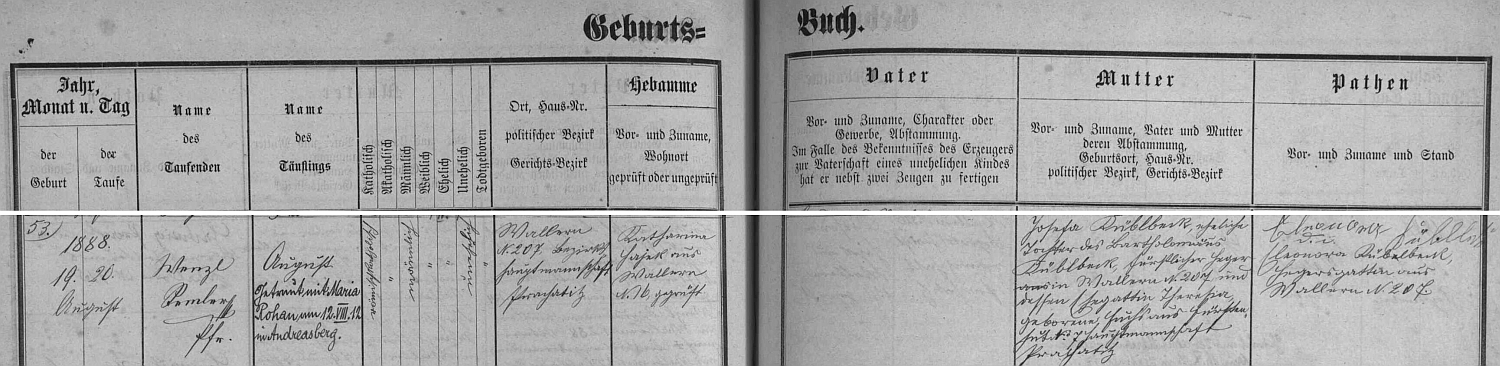 Geburts=
Buch.
Jahr,
Monat u. Tag
der
Geburt
der
Taufe
Name
des
Taufenden
Name
des
Täuflings
Katholisch
Akatholisch
Männlich
Weiblich
Ehelich
Unehelich
Todtgeboren
Ort, Haus-Nr.
politischer Bezirk
Gerichts-Bezirk
Hebamme
Vor- und Zuname,
Wohnort
geprüft oder ungeprüft
Vater
Vor- und Zuname, Charakter oder
Gewerbe, Abstammung.
Im Falle des Bekenntnisses des Erzeugers
zur Vaterschaft eines unehelichen Kindes
hat er nebst zwei Zeugen zu fertigen
Mutter
Vor- und Zuname, Vater und Mutter
deren Abstammung,
Geburtsort, Haus-Nr.
politischer Bezirk, Gerichts-Bezirk
Pathen
Vor- und Zuname und Stand
53.
1888.
19. 20.
August
Wenzl
Pfr.
August
Getraut mit Maria
Rohau, am 12. VIII. 12
in Andreasberg.
Wallern
N. 207. Bezirks
hauptmannschaft
Prachatitz
Katharina
Hajek aus
Wallern
geprüft
Josefa Küblbeck, eheliche
Tochter des Bartholomäus
Küblbeck, fürstlicher Heger
aus in Wallern N. 207 und
dessen Ehegattin Theresia,
geborene Fuchs aus Fürsten
hut, Hauptmannschaft
Prachatitz
Eleonora
d. i.
Eleonora Kübelbeck,
Hegersgattin aus
Wallern N. 207.